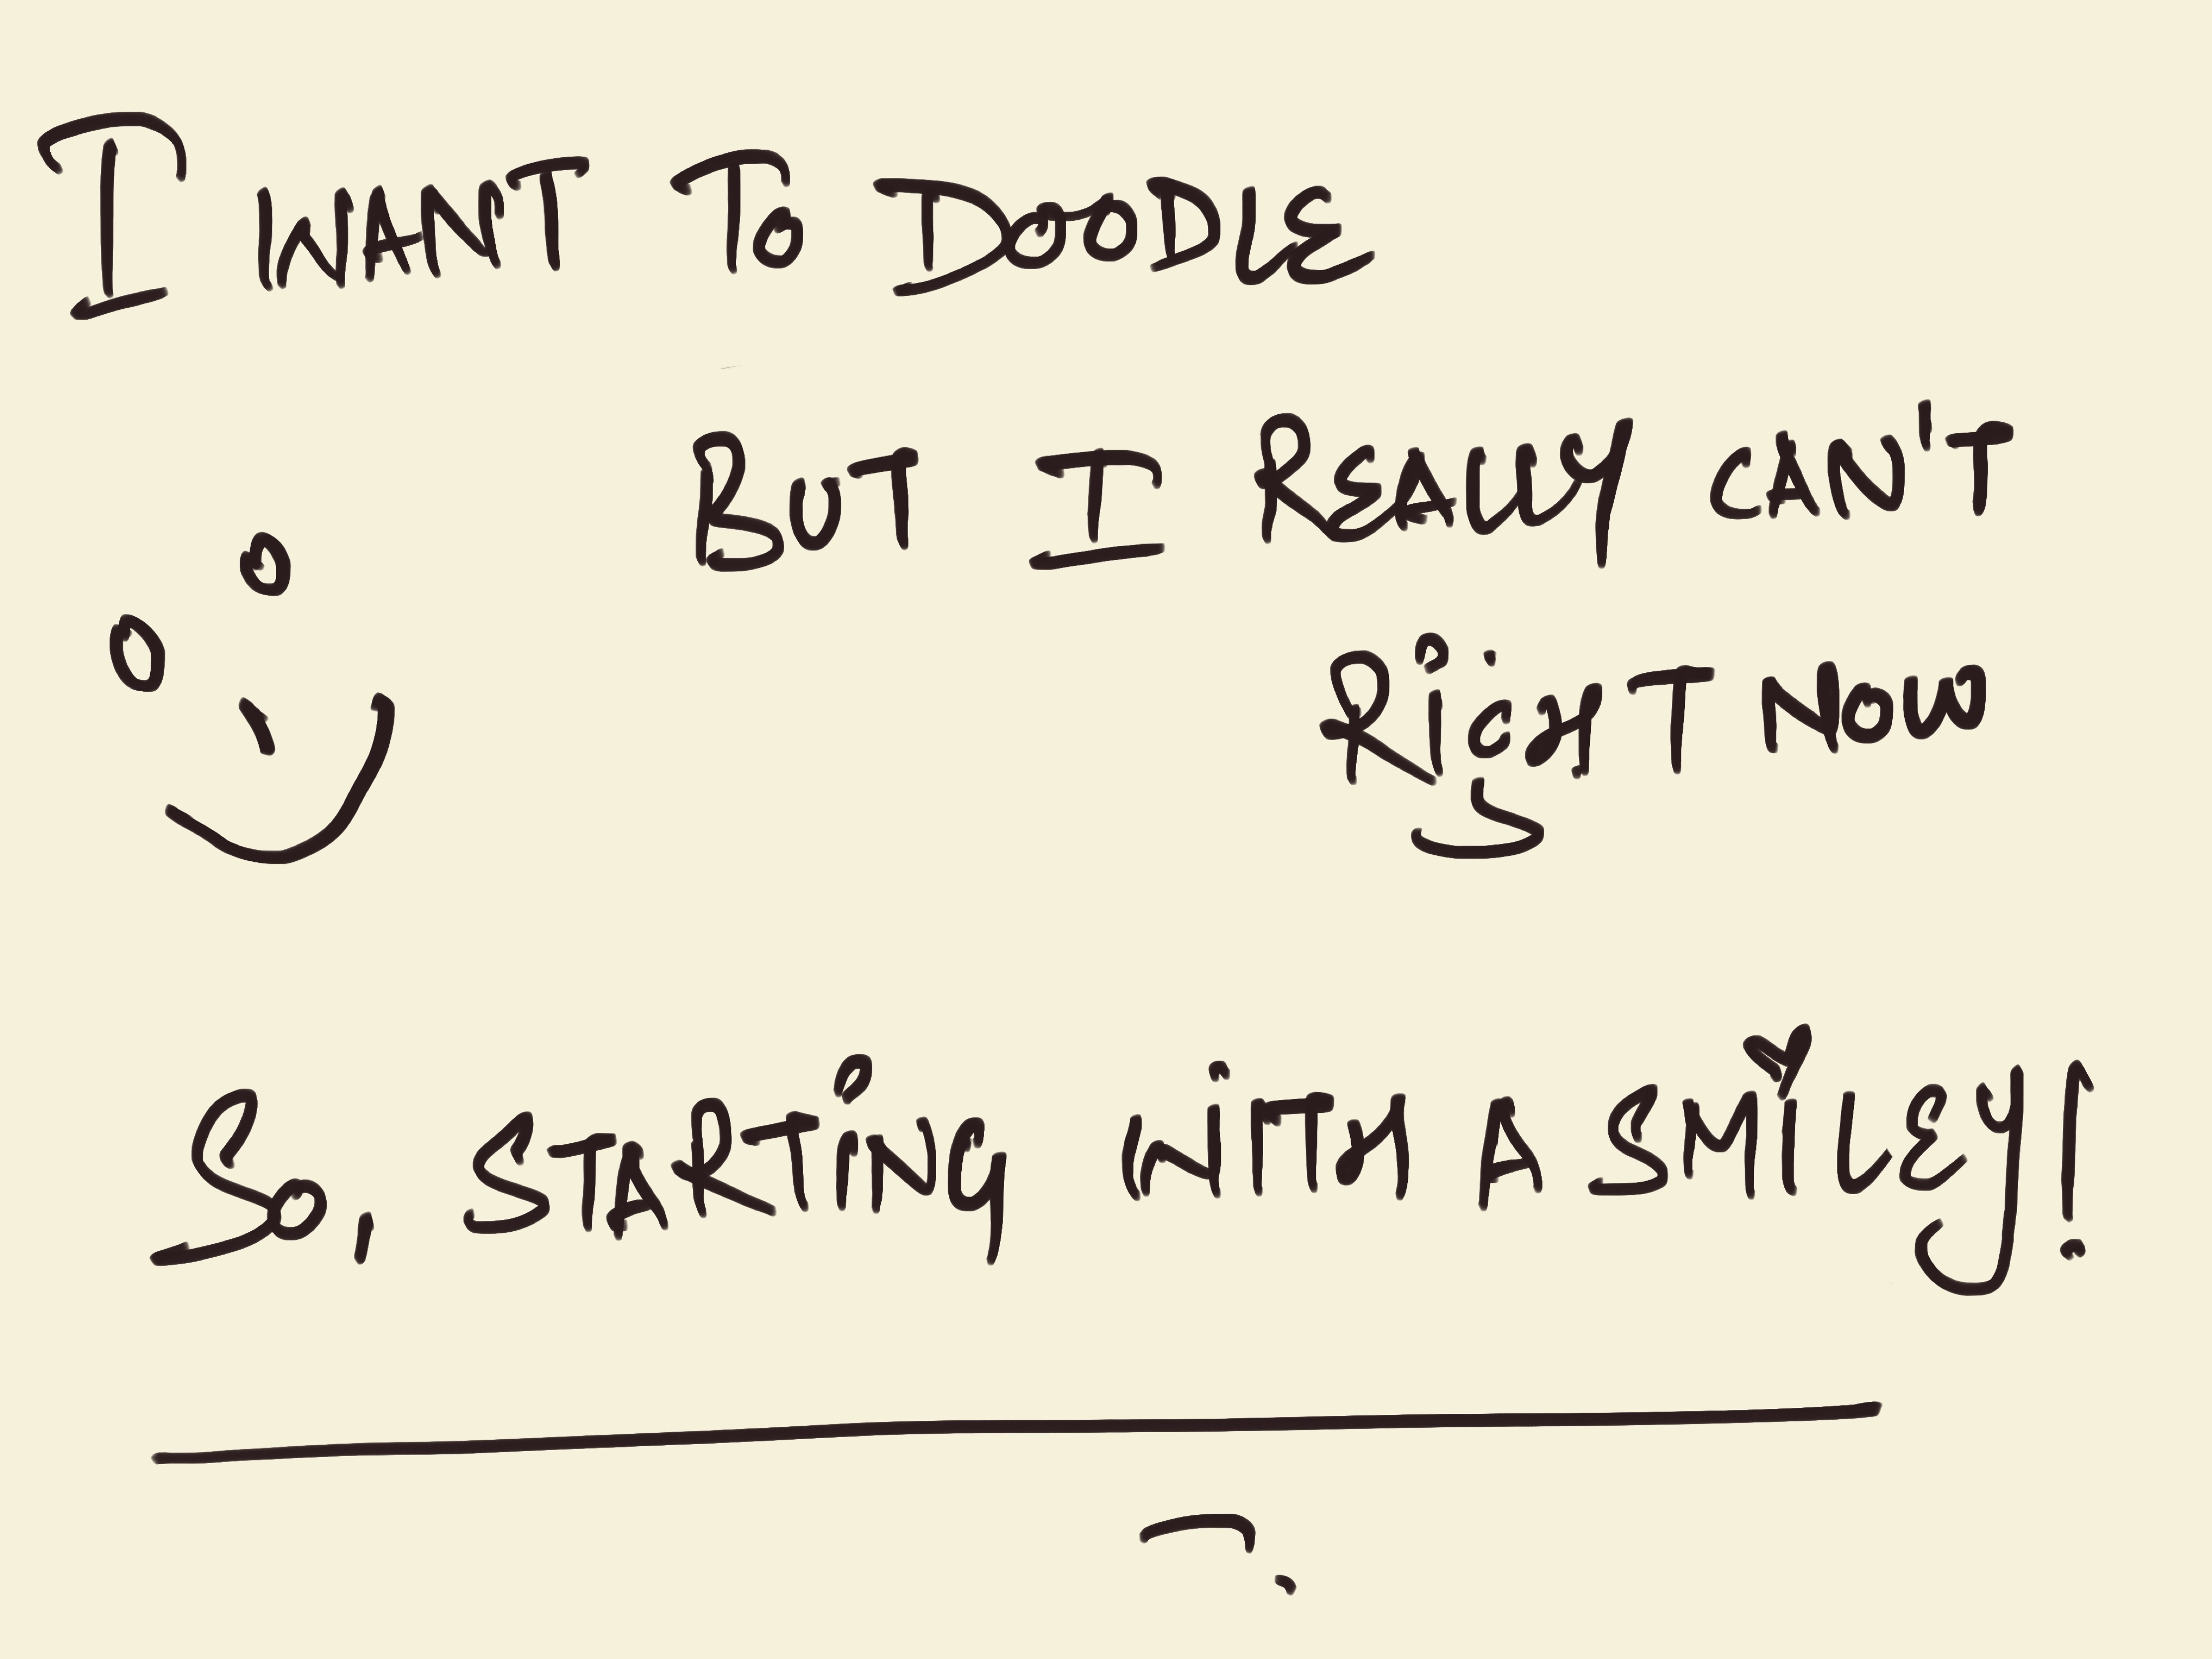 I WANT TO DOODLE
BUT I REALLY CAN'T
RiGHT NOW
So, STARTiNG WiTH A SMiLEY!